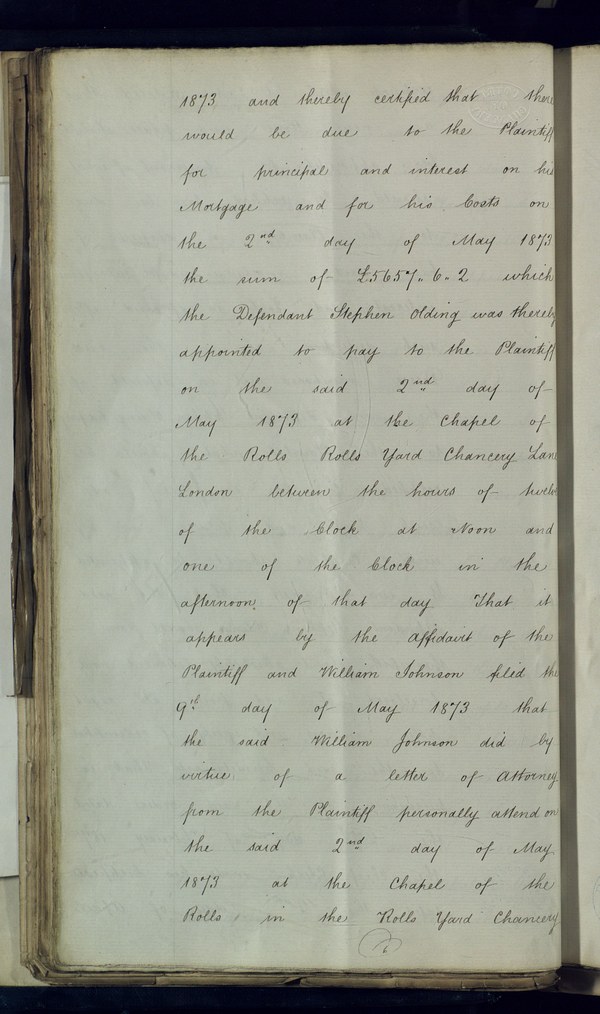 1873 and thereby certified that there
would be due to the Plaintiff
for principal and interest on his
Mortgage and for his Costs on
the 2nd day of May 1873
the sum of £5657,, 6,, 2 which
the Defendant Stephen Olding was thereby
appointed to pay to the Plaintiff
on the said 2nd day of
May 1873 at the Chapel of
the Rolls Rolls Yard Chancery Lane
London between the hours of twelve
of the Clock at Noon and
one of the Clock in the
afternoon of that day That it
appears by the affidavit of the
Plaintiff and William Johnson filed the
9th day of May 1873 that
the said William Johnson did by
virtue of a letter of Attorney
from the Plaintiff personally attend on
the said 2nd day of May
1873 at the Chapel of the
Rolls in the Rolls Yard Chancery